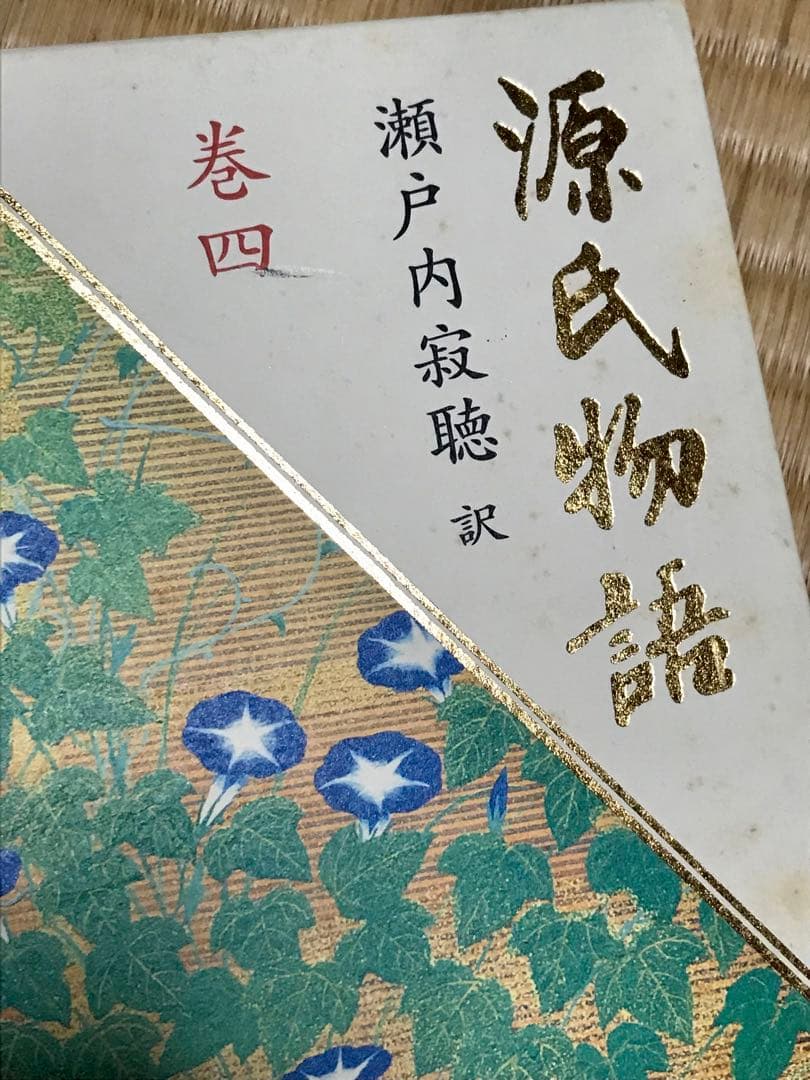 源氏物語
瀬戸内寂聴 訳
巻四